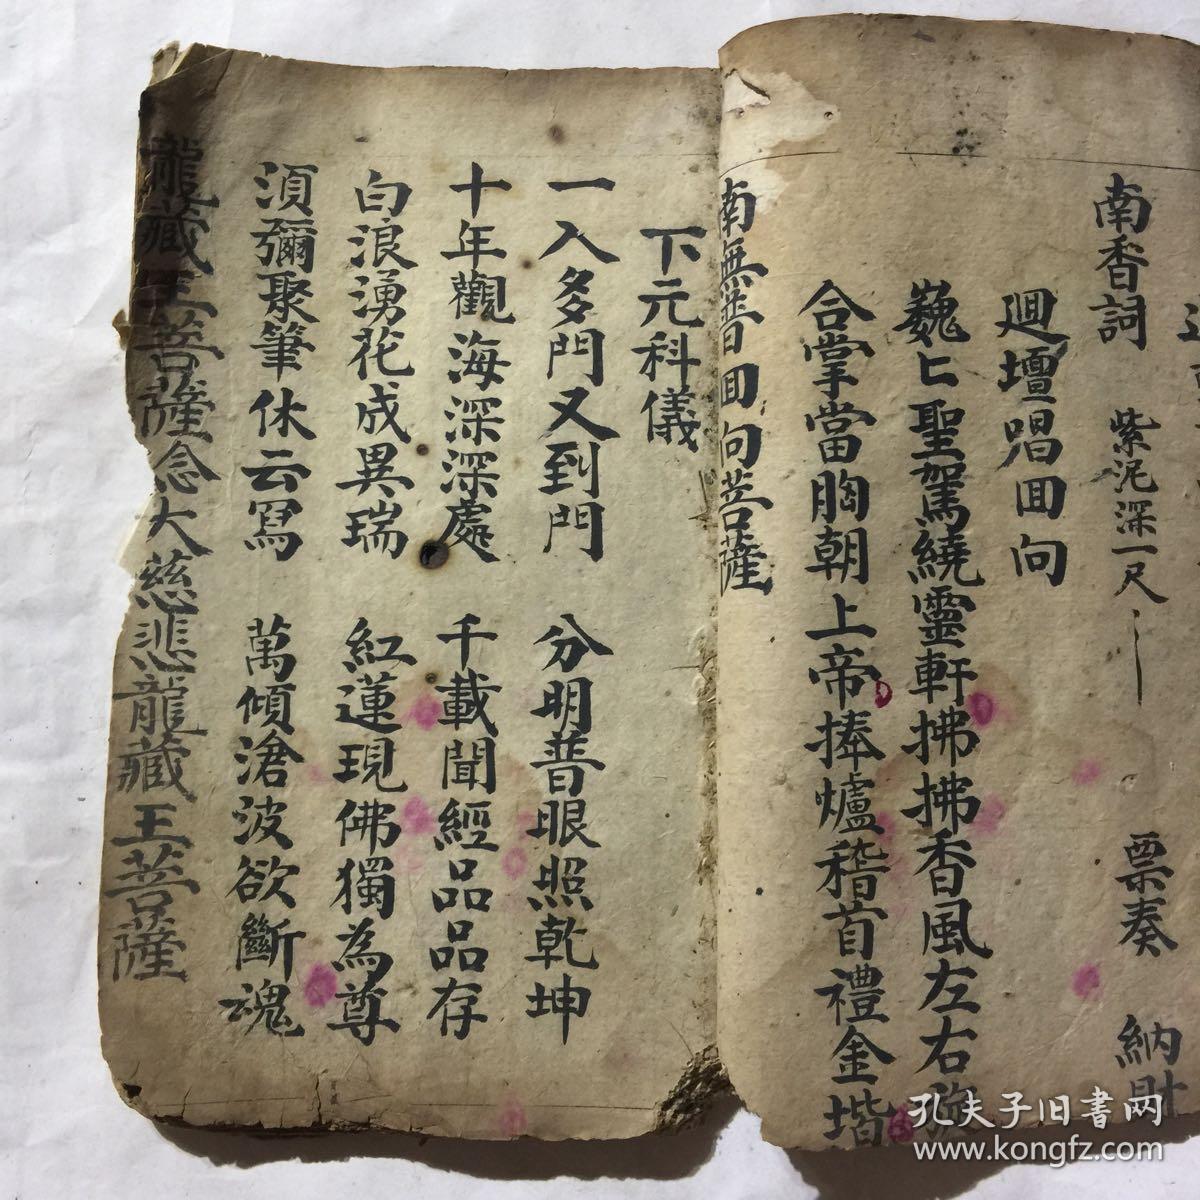 南香詞 紫泥深一尺 票奏 納財
迴壇唱回向
巍匕聖駕繞靈軒拂拂香風左右
合掌當胸朝上帝捧爐稽首禮金堦
南無普回向菩薩
下元科儀
一入多門又到門 分明普眼照乾坤
十年觀海深深處 千載聞經品品存
白浪湧花成異瑞 紅蓮現佛獨為尊
須彌聚筆休云冩 萬傾滄波欲斷魂
龍藏王菩薩念大慈悲龍藏王菩薩
孔夫子旧書网
www.kongfz.com